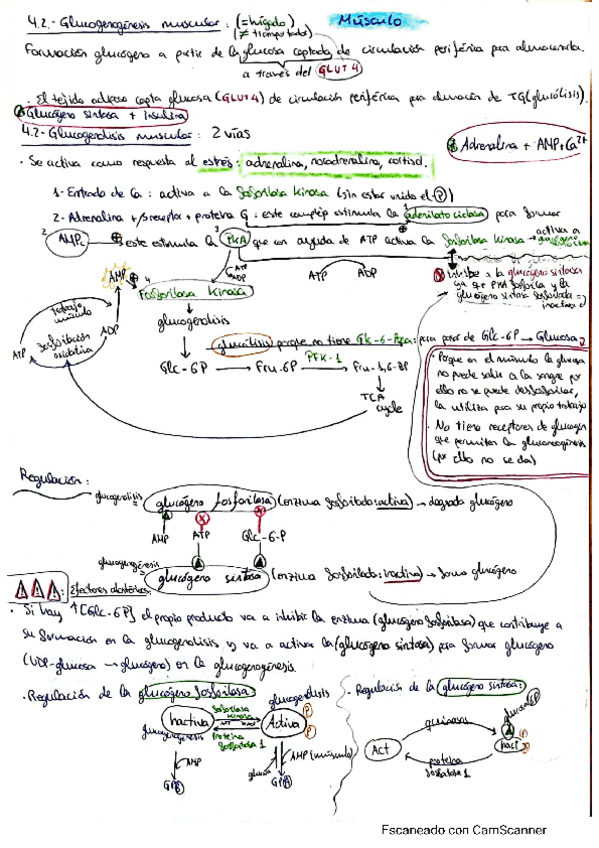 4.2.- Glucogenogénesis muscular: (=hígado) Músculo
(≠ transportador)
Formación glucógeno a partir de la glucosa captada de circulación periférica para almacenarla.
a través del GLUT4
· El tejido adiposo capta glucosa (GLUT4) de circulación periférica para almacén de TG (glucólisis).
Glucógeno sintasa + insulina
4.2- Glucogenolisis muscular: 2 vías
Adrenalina + AMP + Ca2+
· Se activa como respuesta al estrés: adrenalina, noradrenalina, cortisol.
1- Entrada de Ca: activa a la fosforilasa kinasa (sin estar unido el P)
2- Adrenalina + β receptor + proteína G: este complejo estimula la adenilato ciclasa para formar
AMPc ⊕ este estimula la PKA que con ayuda de ATP activa la fosforilasa kinasa → activa a
ATP ADP
ATP ADP
Inhibe a la glucógeno sintasa
ya que PKA fosforila y la
glucógeno sintasa fosforilada
inactiva
AMP
Fosforilasa kinasa
Trabajo
músculo
fosforilación
oxidativa
ATP ADP
glucogenolisis
glucólisis porque no tiene para pasar de Glc-6P → Glucosa
Glc-6P → Fru-6P PFK-1 → Fru-1,6-BP
TCA
cycle
· Porque en el músculo la glucosa
no puede salir a la sangre por
ello no se puede desfosforilar,
la utiliza para su propio trabajo
· No tiene receptores de glucagón
que permiten la gluconeogénesis
(por ello no se da)
Regulación:
glucogenolisis glucógeno fosforilasa (enzima fosforilada: activa) → degrada glucógeno
AMP ATP Glc-6-P
glucogenogénesis
glucógeno sintasa (enzima fosforilada: inactiva) → forma glucógeno
Efectores alostéricos:
· Si hay ↑[Glc-6P] el propio producto va a inhibir la enzima (glucógeno fosforilasa) que contribuye a
su formación en la glucogenolisis y va a activar la (glucógeno sintasa) para formar glucógeno
(UDP-glucosa → glucógeno) en la glucogenogénesis.
· Regulación de la glucógeno fosforilasa
glucogenolisis
Inactiva fosforilasa kinasa Activa P P
glucogenogénesis Proteína fosfatasa 1
AMP glucosa AMP (músculo)
GPB GPA
· Regulación de la glucógeno sintasa:
glucosa 6P
Act quinasas Inact P
proteína
fosfatasa 1
Escaneado con CamScanner